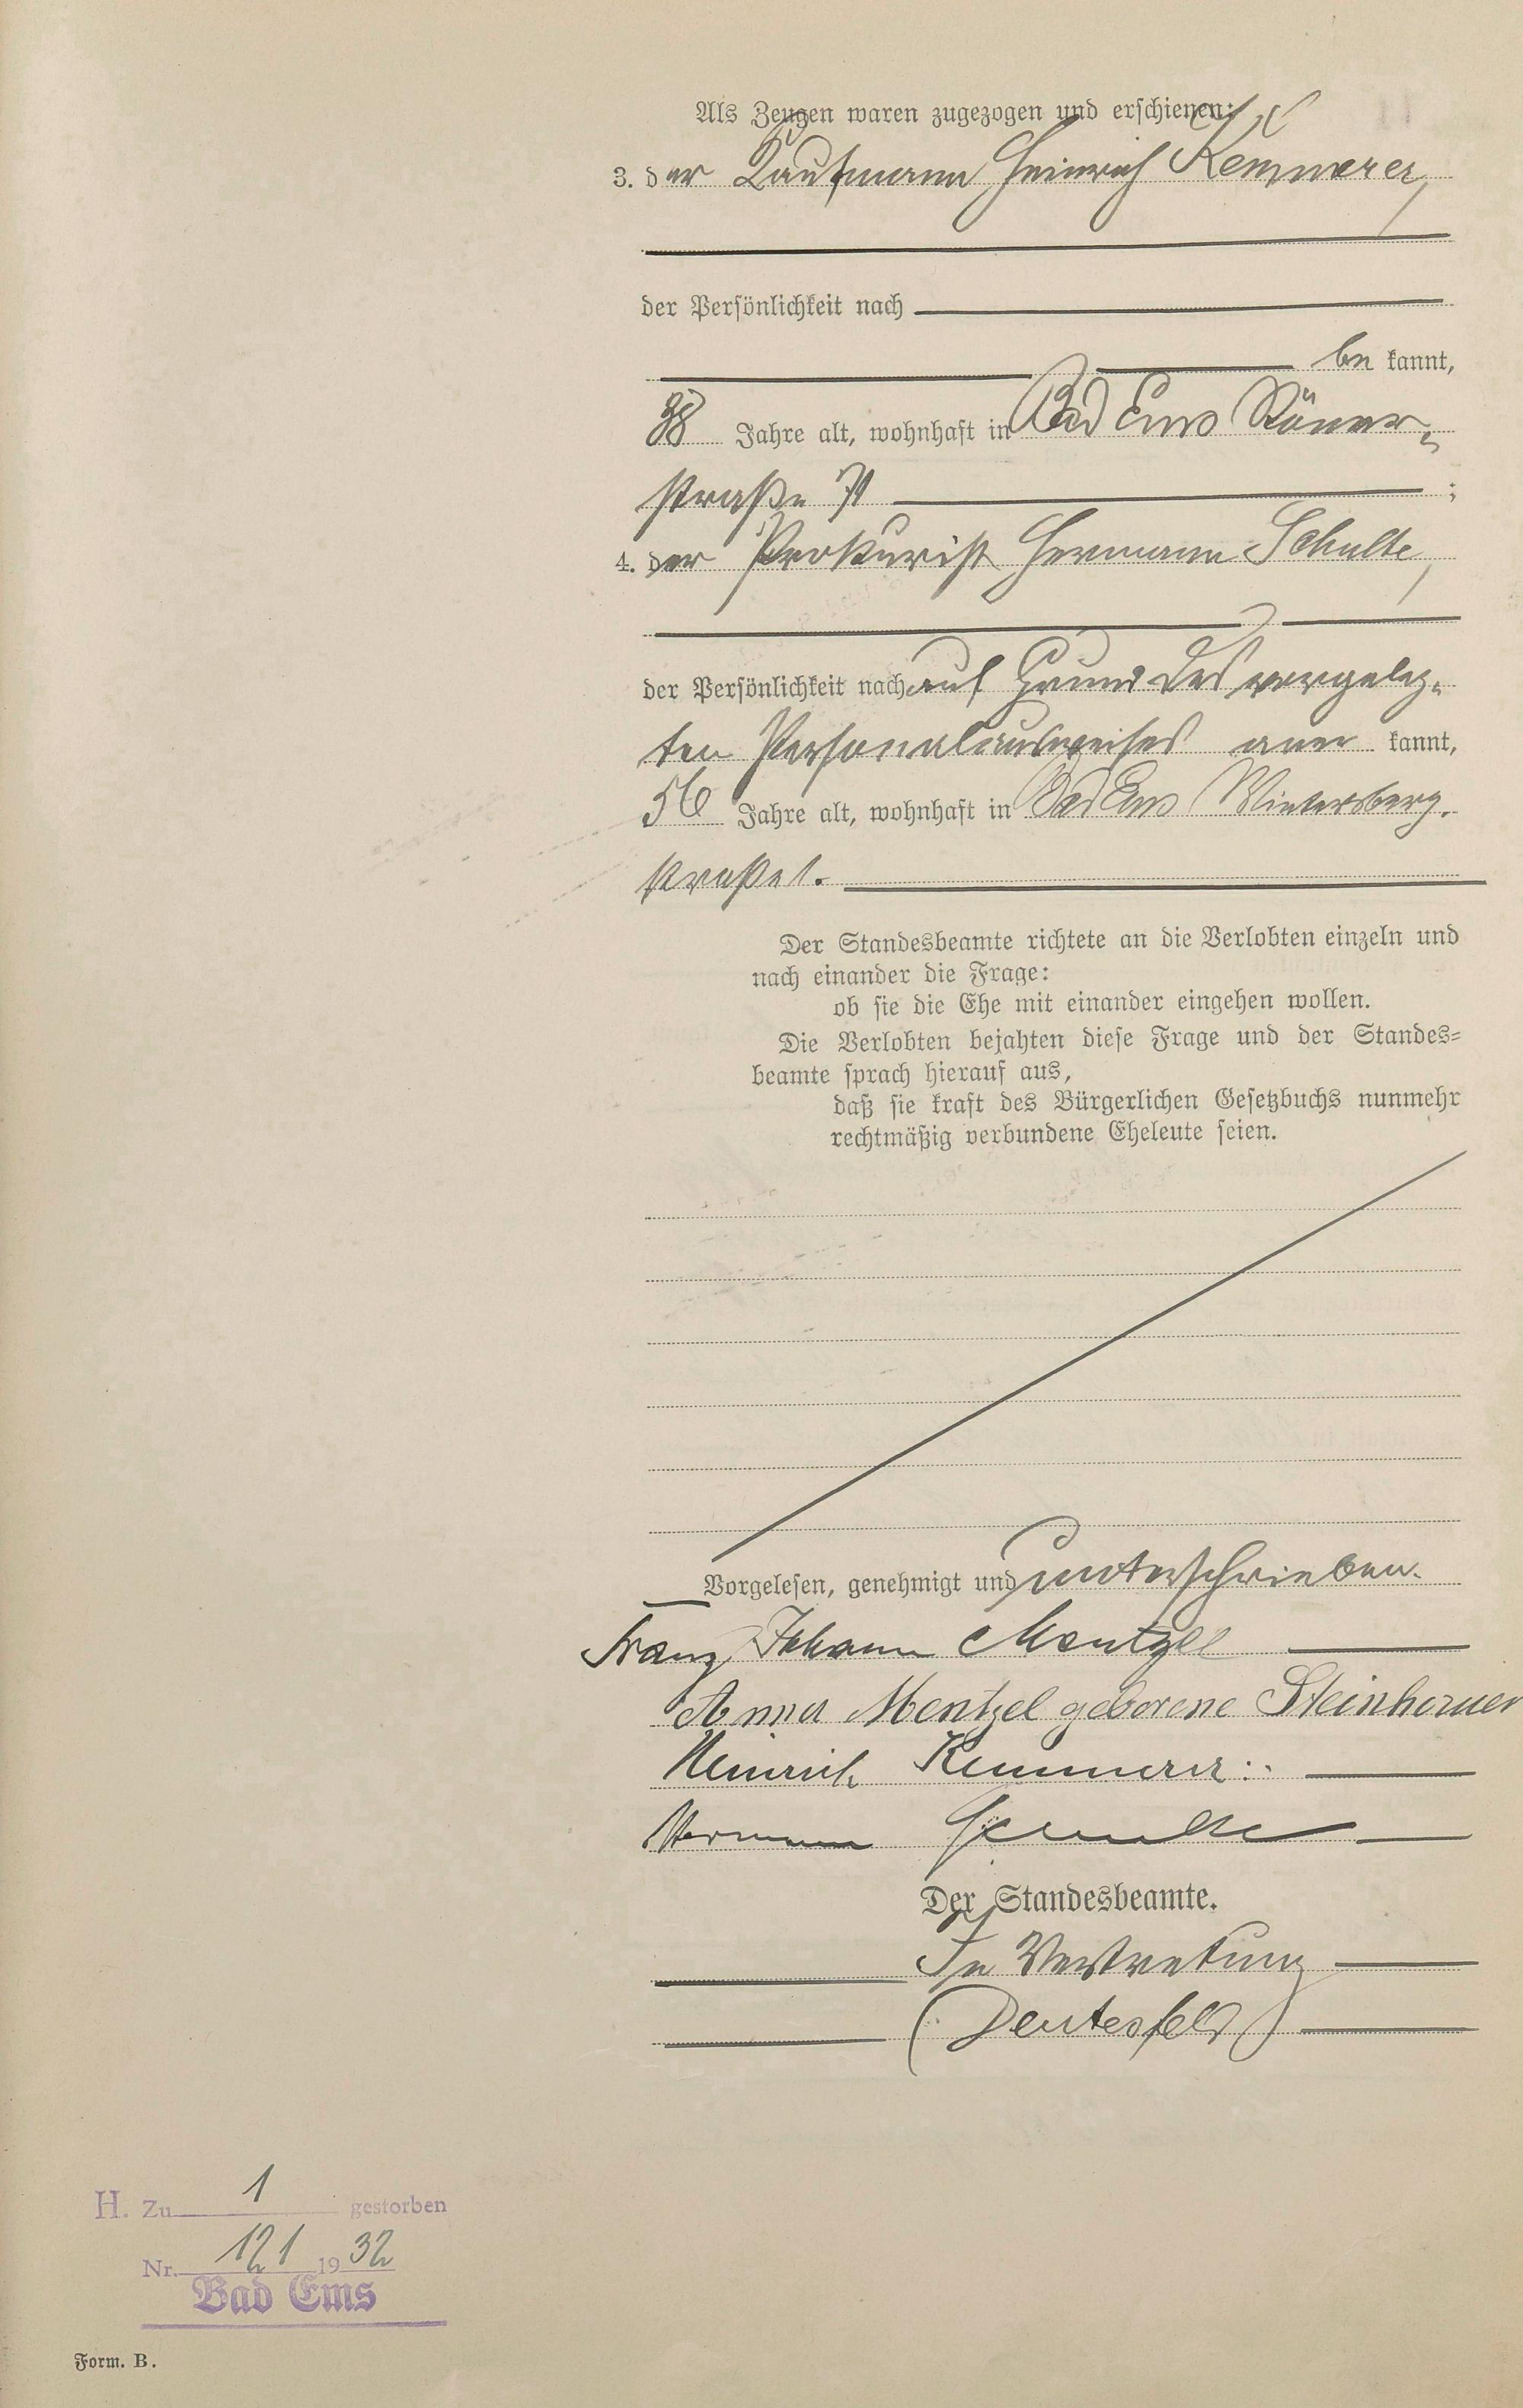 Als Zeugen waren zugezogen und erschienen:
3. der Kaufmann Heinrich Kemmerer,
der Persönlichkeit nach
be kannt,
38 Jahre alt, wohnhaft in Bad Ems Römer-
straße ;
4. der Prokurist Hermann Schulte,
der Persönlichkeit nach auf Grund des vorgeleg-
ten Personalausweises aner kannt,
56 Jahre alt, wohnhaft in Bad Ems Wintersberg-
straße 1.
Der Standesbeamte richtete an die Verlobten einzeln und
nach einander die Frage:
ob sie die Ehe mit einander eingehen wollen.
Die Verlobten bejahten diese Frage und der Standes-
beamte sprach hierauf aus,
daß sie kraft des Bürgerlichen Gesetzbuchs nunmehr
rechtmäßig verbundene Eheleute seien.
Vorgelesen, genehmigt und unterschrieben.
Franz Johann Mentzel
Anna Mentzel geborene
Heinrich Kemmerer
Hermann Schulte
Der Standesbeamte.
In Vertretung
(Deutesfeld)
H. Zu 1 gestorben
Nr. 121 1932
Bad Ems
Form. B.